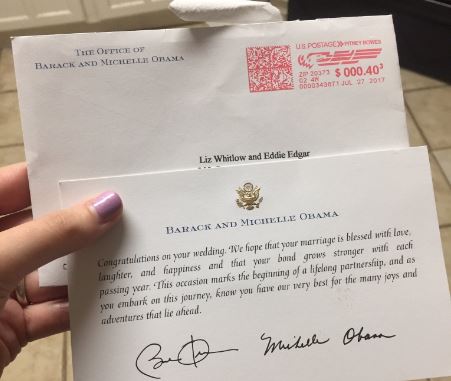 THE OFFICE OF
BARACK AND MICHELLE OBAMA
U.S. POSTAGE PITNEY BOWES
ZIP 20373
02 4W
$ 000.40³
0000343671 JUL 27 2017
Liz Whitlow and Eddie Edgar
BARACK AND MICHELLE OBAMA
Congratulations on your wedding. We hope that your marriage is blessed with love,
laughter, and happiness and that your bond grows stronger with each
passing year. This occasion marks the beginning of a lifelong partnership, and as
you embark on this journey, know you have our very best for the many joys and
adventures that lie ahead.
Michelle Obama